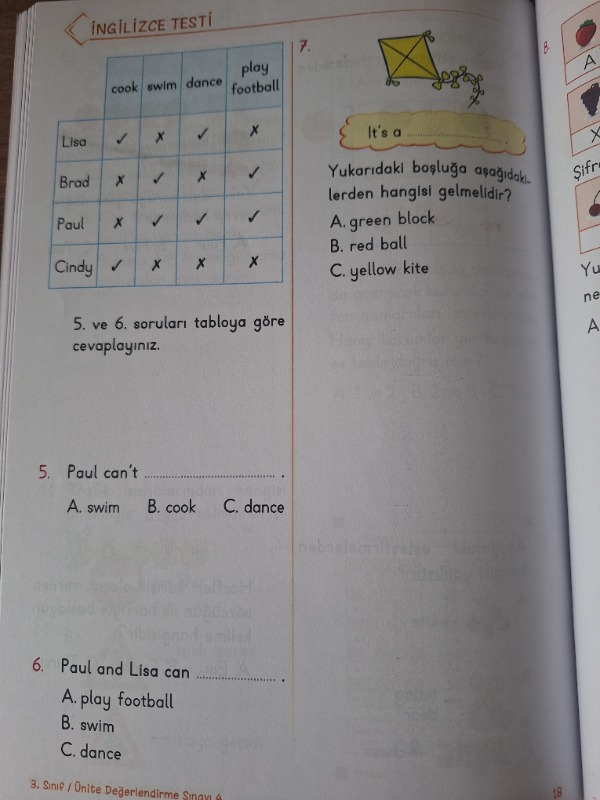 İNGİLİZCE TESTİ
cook swim dance play football
Lisa ✓ ✗ ✓ ✗
Brad ✗ ✓ ✗ ✓
Paul ✗ ✓ ✓ ✓
Cindy ✓ ✗ ✗ ✗
5. ve 6. soruları tabloya göre
cevaplayınız.
5. Paul can't .................................... .
A. swim B. cook C. dance
6. Paul and Lisa can ...................... .
A. play football
B. swim
C. dance
3. Sınıf / Ünite Değerlendirme Sınavı 4
7.
It's a .......................... .
Yukarıdaki boşluğa aşağıdaki-
lerden hangisi gelmelidir?
A. green block
B. red ball
C. yellow kite
18
8.
A
X
Şifr
Yu
ne
A